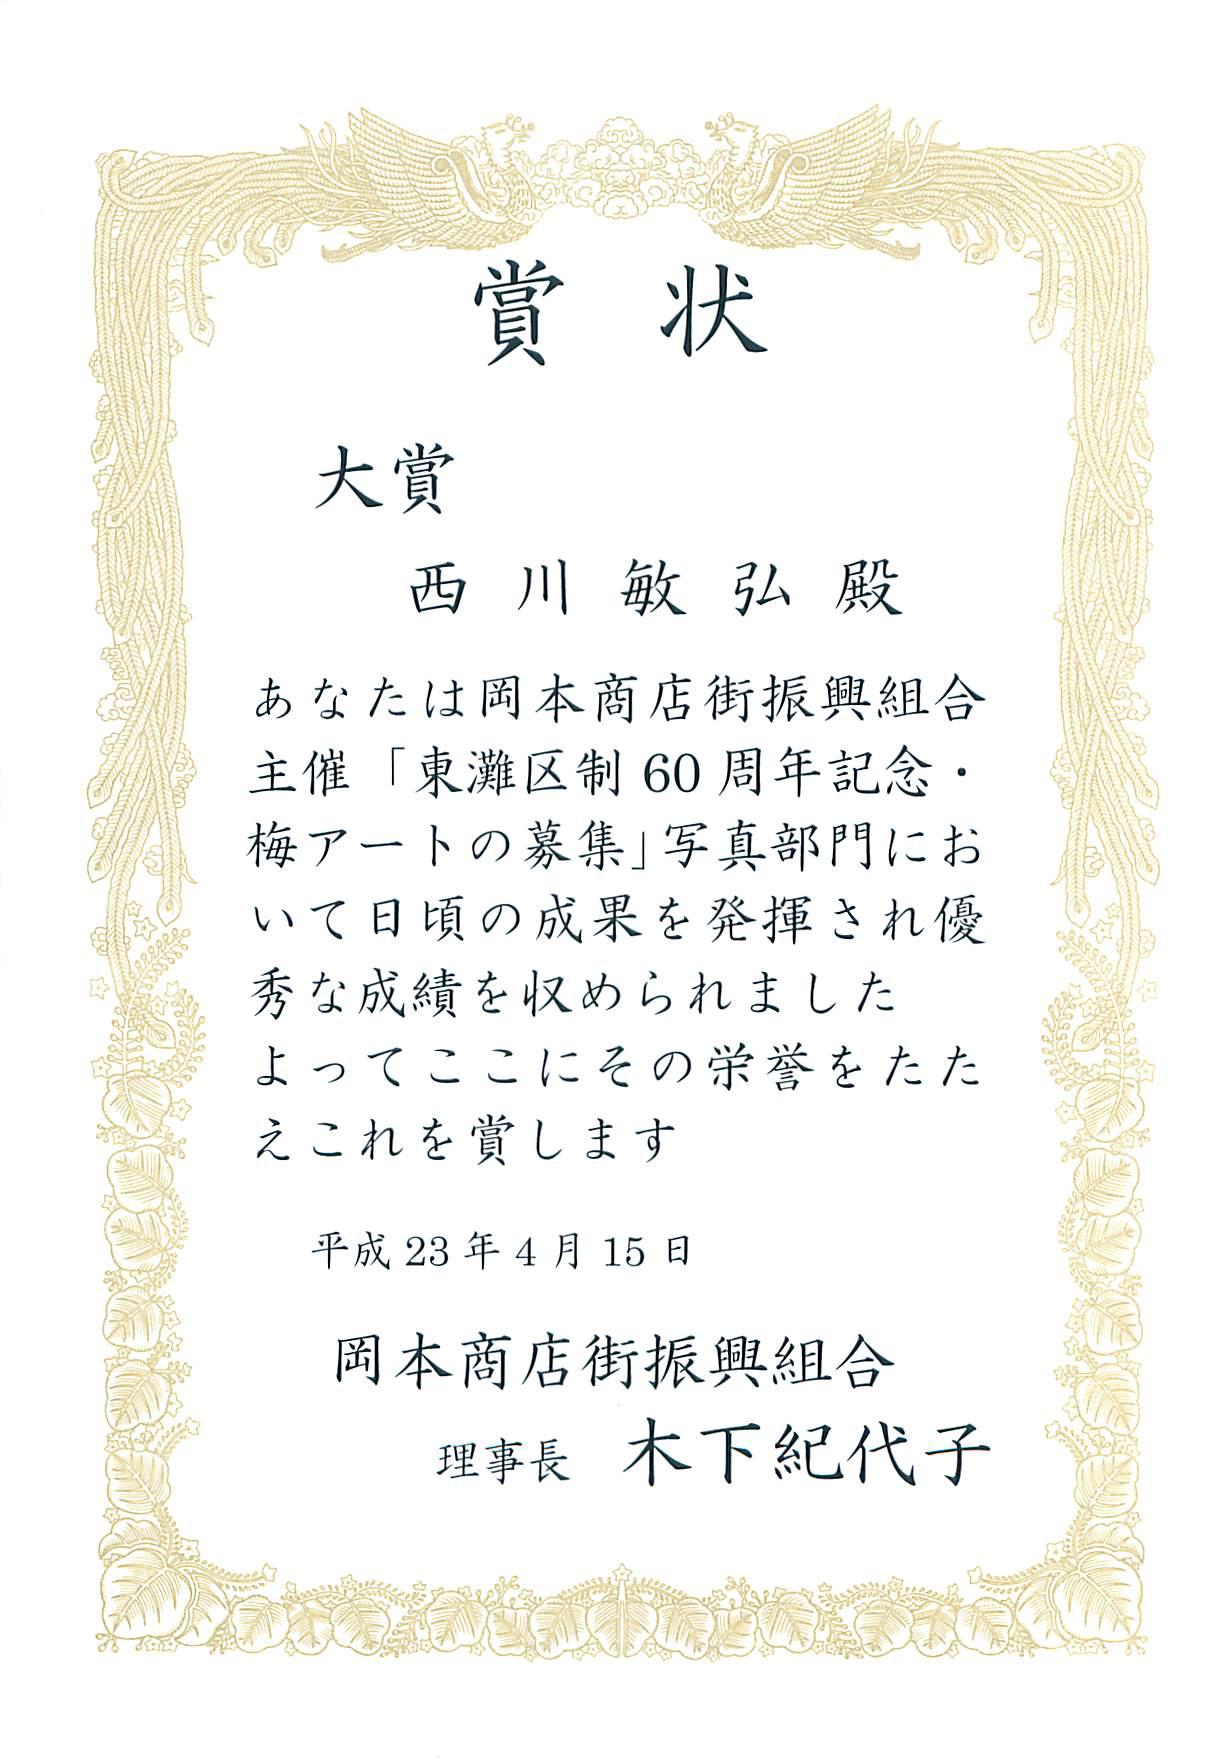 賞状
大賞
西川敏弘殿
あなたは岡本商店街振興組合
主催「東灘区制60周年記念・
梅アートの募集」写真部門にお
いて日頃の成果を発揮され優
秀な成績を収められました
よってここにその栄誉をたた
えこれを賞します
平成23年4月15日
岡本商店街振興組合
理事長 木下紀代子